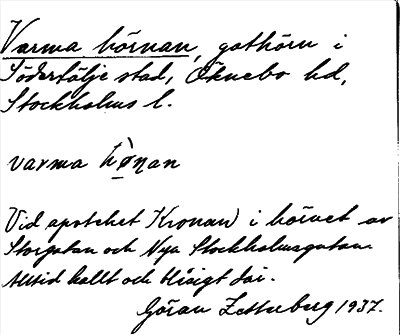 Varma hörnan, gathörn i
Södertälje stad, Öknebo hd,
Stockholms l.
varma hø̀ṇan
Vid apoteket Kronan i hörnet av
Storgatan och Nya Stockholmsgatan.
Alltid kallt och blåsigt där.
Göran Zetterberg 1937.